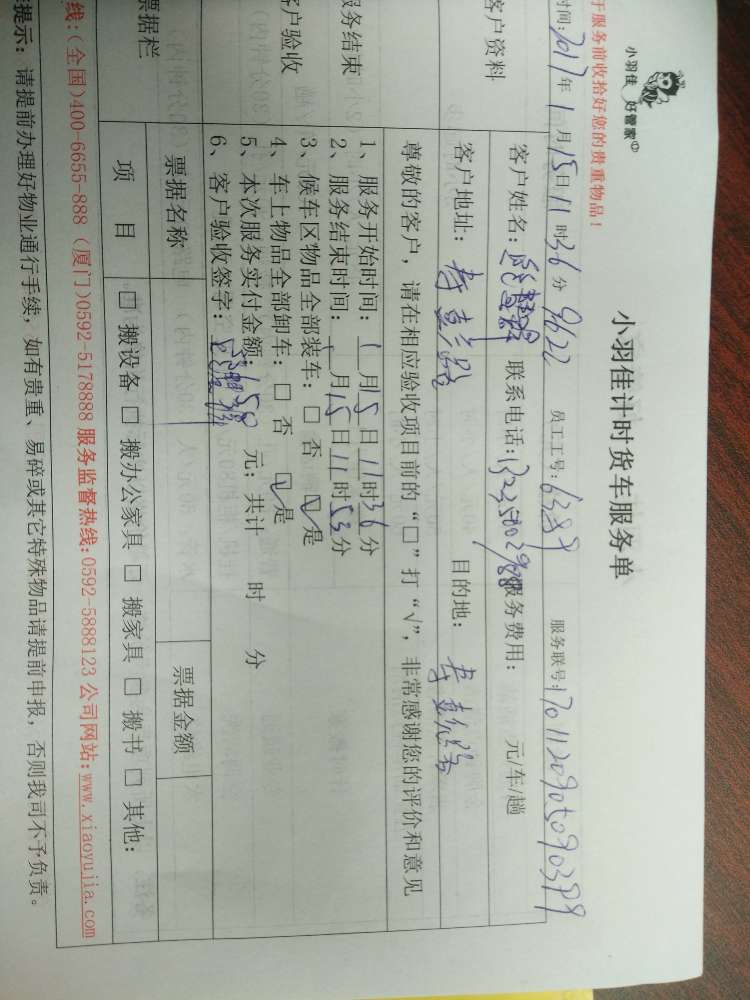 小羽佳 好管家
小羽佳计时货车服务单
于服务前收拾好您的贵重物品！
时间：2017年1月15日11时36分 9622 员工工号：6389 服务联号：
客户资料
客户姓名： 联系电话： 服务费用： 元/车/趟
客户地址： 目的地：
尊敬的客户，请在相应验收项目前的“□”打“√”，非常感谢您的评价和意见
服务结束
1、服务开始时间：1月15日11时36分
2、服务结束时间：1月15日11时53分
客户验收
3、候车区物品全部装车：□ 否 ☑ 是
4、车上物品全部卸车：□ 否 ☑ 是
5、本次服务实付金额：150元；共计 时 分
6、客户验收签字：
票据栏
票据名称 票据金额
项 目 □ 搬设备 □ 搬办公家具 □ 搬家具 □ 搬书 □ 其他：
线：（全国）400-6655-888（厦门）0592-5178888 服务监督热线：0592-5888123 公司网站：www.xiaoyujia.com
提示：请提前办理好物业通行手续，如有贵重、易碎或其它特殊物品请提前申报，否则我司不予负责。